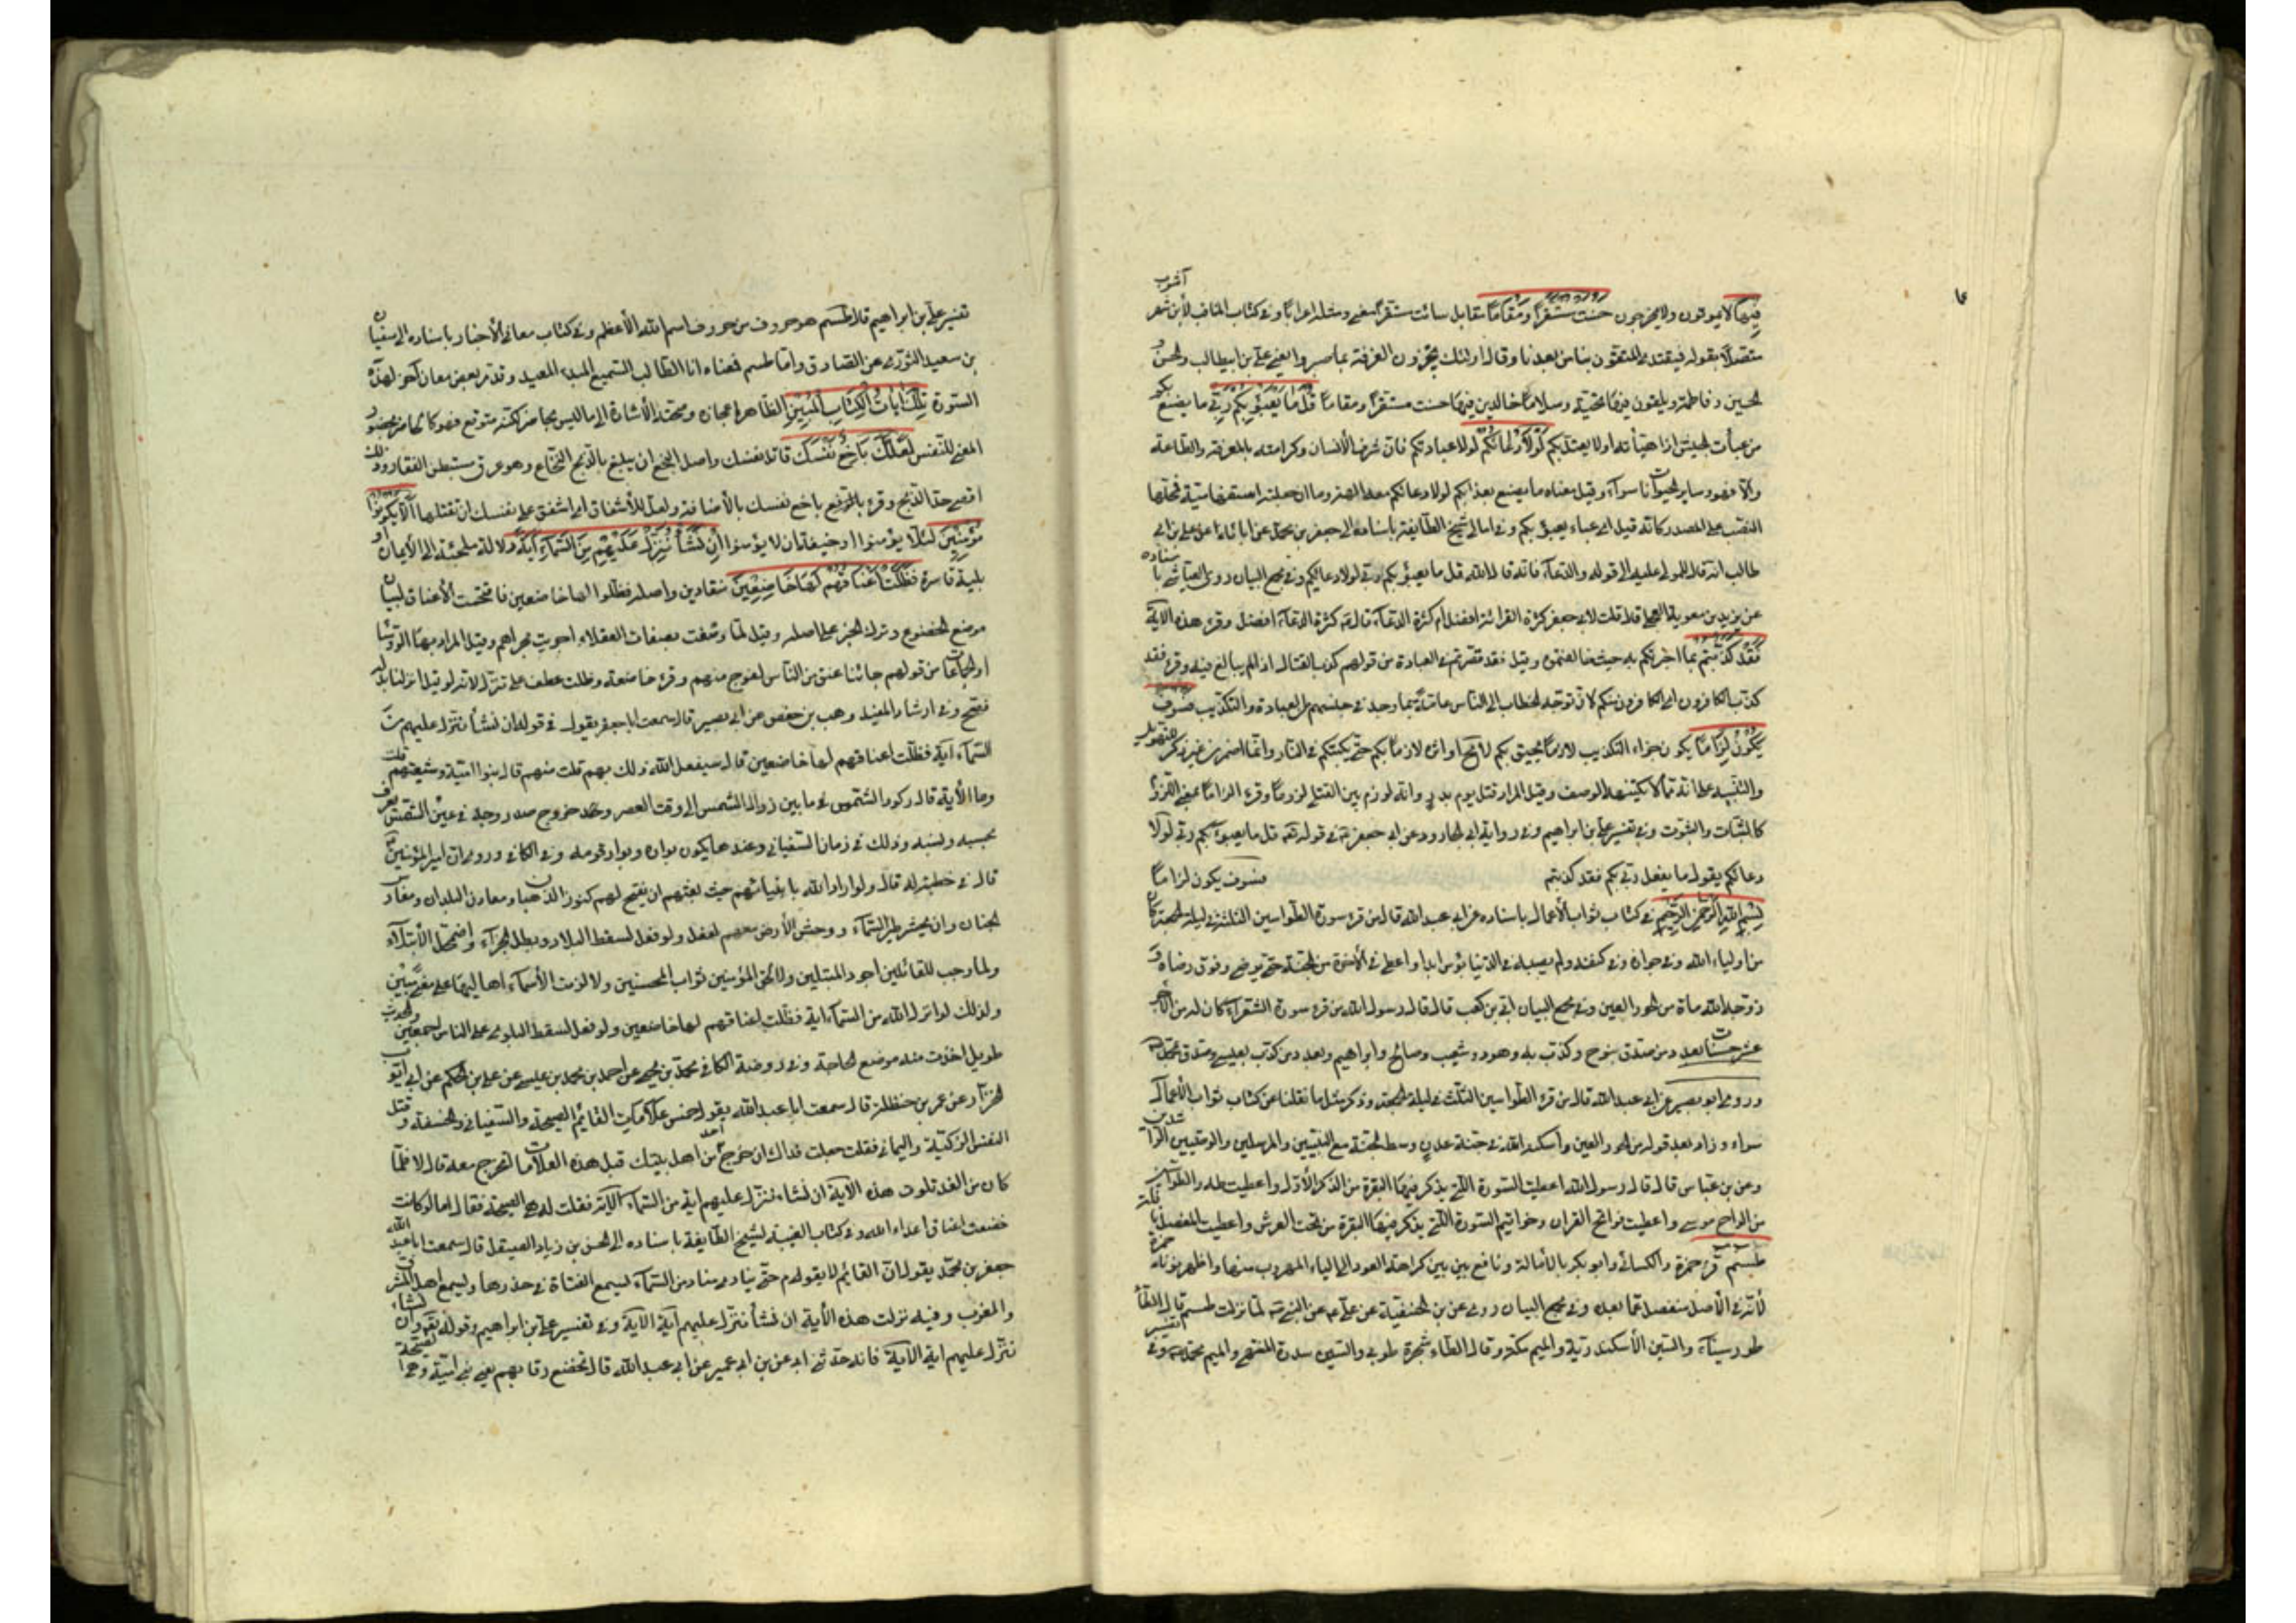 فيها لا يموتون ولا يخرجون حسنت مستقرا ومقاما مقابل سائت مستقرا معنى ومثله اعرابا وفي كتاب المناقب لابن شهر آشوب
متصلا بقوله فيقتدى المتقون بنا من بعدنا وقال اولئك يجزون الغرفة بما صبروا يعنى على بن ابيطالب والحسن و
الحسين وفاطمة ويلقون فيها تحية وسلاما خالدين فيها حسنت مستقرا ومقاما قل ما يعبؤ بكم ربى ما يصنع بكم
من عبأت الجيش اذا هيأته او لا يعتد بكم لولا دعائكم لولا عبادتكم فان شرف الانسان وكرامته بالمعرفة والطاعة
والا فهو وساير الحيوانات سواء وقيل معناه ما يصنع بعذابكم لولا دعائكم معه الهة وما ان جعلته استفهامية فمحلها
النصب على المصدر كانه قيل اى عباء يعبؤ بكم وفي امالى شيخ الطايفة باسناده الى جعفر بن محمد عن ابائه عن على بن ابى
طالب انه قال الى قوله والدعاء فانه قال الله قل ما يعبؤ بكم ربى لولا دعائكم وفي مجمع البيان روى العياشى باسناده
عن بريد بن معوية العجلى قال قلت لابى جعفر كثرة القرائة افضل ام كثرة الدعاء قال كثرة الدعاء افضل وقرء هذه الاية
فقد كذبتم بما اخبرتكم به حيث خالفتموه وقيل فقد قصرتم في العبادة من قولهم كذب القتال اذا لم يبالغ فيه وقرء فقد
كذب الكافرون اى الكافرون منكم لان توجه الخطاب الى الناس عامة بما وجد في جنسهم من العبادة والتكذيب فسوف
يكون لزاما يكون جزاء التكذيب لازما يحيق بكم لا محالة او اثره لازما بكم حتى يكبكم في النار وانما اضمر من غير ذكر للتهويل
والتنبيه على انه مما لا يكتنهه الوصف وقيل المراد قتل يوم بدر وانه لوزم بين القتلى لزوما وقرء لزاما بمعنى اللزوم
كالثبات والثبوت وفي تفسير على بن ابراهيم وفي رواية ابى الجارود عن ابى جعفر في قوله قل ما يعبؤ بكم ربى لولا
دعائكم يقول ما يفعل ربى بكم فقد كذبتم فسوف يكون لزاما
بسم الله الرحمن الرحيم في كتاب ثواب الاعمال باسناده عن ابى عبد الله قال من قرء سورة الطواسين الثلثة في ليلة الجمعة كان
من اولياء الله وفي جواره وفي كنفه ولم يصبه في الدنيا بؤس ابدا واعطى في الاخرة من الجنة حتى يرضى وفوق رضاه و
زوجه الله مأة من الحور العين وفي مجمع البيان ابى بن كعب قال قال رسول الله من قرء سورة الشعراء كان له من الاجر
عشر حسنات بعدد من صدق بنوح وكذب به وهود وشعيب وصالح وابراهيم وبعدد من كذب بعيسى وصدق بمحمد
وروى ابو بصير عن ابى عبد الله قال من قرء الطواسين الثلث في ليلة الجمعة وذكر مثل ما نقلنا عن كتاب ثواب الاعمال
سواء وزاد بعد قوله من الحور العين واسكنه الله في جنة عدن وسط الجنة مع النبيين والمرسلين والوصيين الراشدين
وعن بن عباس قال قال رسول الله اعطيت السورة التى يذكر فيها البقرة من الذكر الاول واعطيت طه والطواسين
من الواح موسى واعطيت فواتح القران وخواتيم السورة التى يذكر فيها البقرة من تحت العرش واعطيت المفصل نافلة
طسم قرء حمزة والكسائى وابو بكر بالامالة ونافع بين بين كراهة العود الى الياء المهروب منها واظهر نونه حمزة
لانه في الاصل منفصل عما بعده وفي مجمع البيان روى عن بن الحنفية عن على عن النبى لما نزلت طسم قال الطاء
طور سيناء والسين الاسكندرية والميم مكة وقال الطاء شجرة طوبى والسين سدرة المنتهى والميم محمد وفي
تفسير على بن ابراهيم قال طسم هو حروف من حروف اسم الله الاعظم وفي كتاب معانى الاخبار باسناده الى سفيان
بن سعيد الثورى عن الصادق واما طسم فمعناه انا الطالب السميع المبدء المعيد وقد مر بعض معان اخر لهذه
السورة تلك ايات الكتاب المبين الظاهر اعجازه وصحته الاشارة الى ما ليس بحاضر لكنه متوقع فهو كالحاضر بحضور
المعنى للنفس لعلك باخع نفسك قاتل نفسك واصل البخع ان يبلغ بالذبح النخاع وهو عرق مستبطن الفقار وذلك
اقصى حد الذبح وقرء باخع نفسك بالاضافة ولعل للاشفاق اى اشفق على نفسك ان تقتلها الا يكونوا
مؤمنين لئلا يؤمنوا او خيفة ان لا يؤمنوا ان نشأ ننزل عليهم من السماء اية دلالة ملجئة الى الايمان او
بلية قاسرة فظلت اعناقهم لها خاضعين منقادين واصله فظلوا لها خاضعين فاقحمت الاعناق لبيان
موضع الخضوع وترك الخبر على اصله وقيل لما وصفت بصفات العقلاء اجريت مجراهم وقيل المراد بها الرؤسا
او الجماعات من قولهم جائنا عنق من الناس لفوج منهم وقرء خاضعة وظلت عطف على ننزل لانه لو قيل انزلنا بدله
لصح وفي ارشاد المفيد وهب بن حفص عن ابى بصير قال سمعت ابا جعفر يقول في قوله ان نشأ ننزل عليهم من
السماء اية فظلت اعناقهم لها خاضعين قال سيفعل الله ذلك بهم قلت من هم قال بنوا امية وشيعتهم قلت
وما الاية قال ركود الشمس ما بين زوال الشمس الى وقت العصر وخروج صدر ووجه في عين الشمس يعرف
بحسبه ونسبه وذلك في زمان السفيانى وعندها يكون بواره وبوار قومه وفي الكافى وروى ان امير المؤمنين
قال في خطبة له قال ولو اراد الله بانبيائهم حيث بعثهم ان يفتح لهم كنوز الذهبان ومعادن البلدان ومغارس
الجنان وان يحشر طير السماء ووحش الارض معهم لفعل ولو فعل لسقط البلاء وبطل الجزاء واضمحل الابتلاء
ولما وجب للقائلين اجور المبتلين ولا لحق المؤمنين ثواب المحسنين ولا لزمت الاسماء اهاليها على معنى مبين
ولذلك لو انزل الله من السماء اية فظلت اعناقهم لها خاضعين ولو فعل لسقط البلوى عن الناس اجمعين والحديث
طويل اخذت منه موضع الحاجة وفي روضة الكافى محمد بن يحيى عن احمد بن محمد بن عيسى عن على بن الحكم عن ابى ايوب
الخزاز عن عمر بن حنظلة قال سمعت ابا عبد الله يقول خمس علامات القائم الصيحة والسفيانى والخسفة وقتل
النفس الزكية واليمانى فقلت جعلت فداك ان خرج احد من اهل بيتك قبل هذه العلامات انخرج معه قال لا فلما
كان من الغد تلوت هذه الاية ان نشاء ننزل عليهم اية من السماء الاية فقلت له اهى الصيحة فقال اما لو كانت
خضعت اعناق اعداء الله وفي كتاب الغيبة لشيخ الطايفة باسناده الى الحسن بن زياد الصيقل قال سمعت ابا عبد الله
جعفر بن محمد يقول ان القائم لا يقوم حتى ينادى مناد من السماء يسمع الفتاة في خدرها ويسمع اهل المشرق
والمغرب وفيه نزلت هذه الاية ان نشأ ننزل عليهم اية الاية وفي تفسير على بن ابراهيم وقوله ان نشاء
ننزل عليهم اية الاية فانه حدثنى ابى عن بن ابى عمير عن ابى عبد الله قال تخضع رقابهم يعنى بنى امية وهى الصيحة